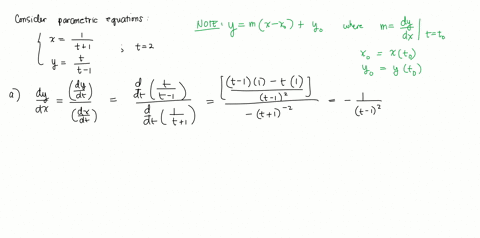 Consider parametric equations:
NOTE: y = m(x-x₀) + y₀ where m = dy/dx | t=t₀
x₀ = x(t₀)
y₀ = y(t₀)
{ x = 1/(t+1)
y = t/(t-1) ; t=2
a) dy/dx = (dy/dt)/(dx/dt) = d/dt (t/(t-1)) / d/dt (1/(t+1)) = [((t-1)(1) - t(1))/(t-1)²] / -(t+1)⁻² = - 1/(t-1)²